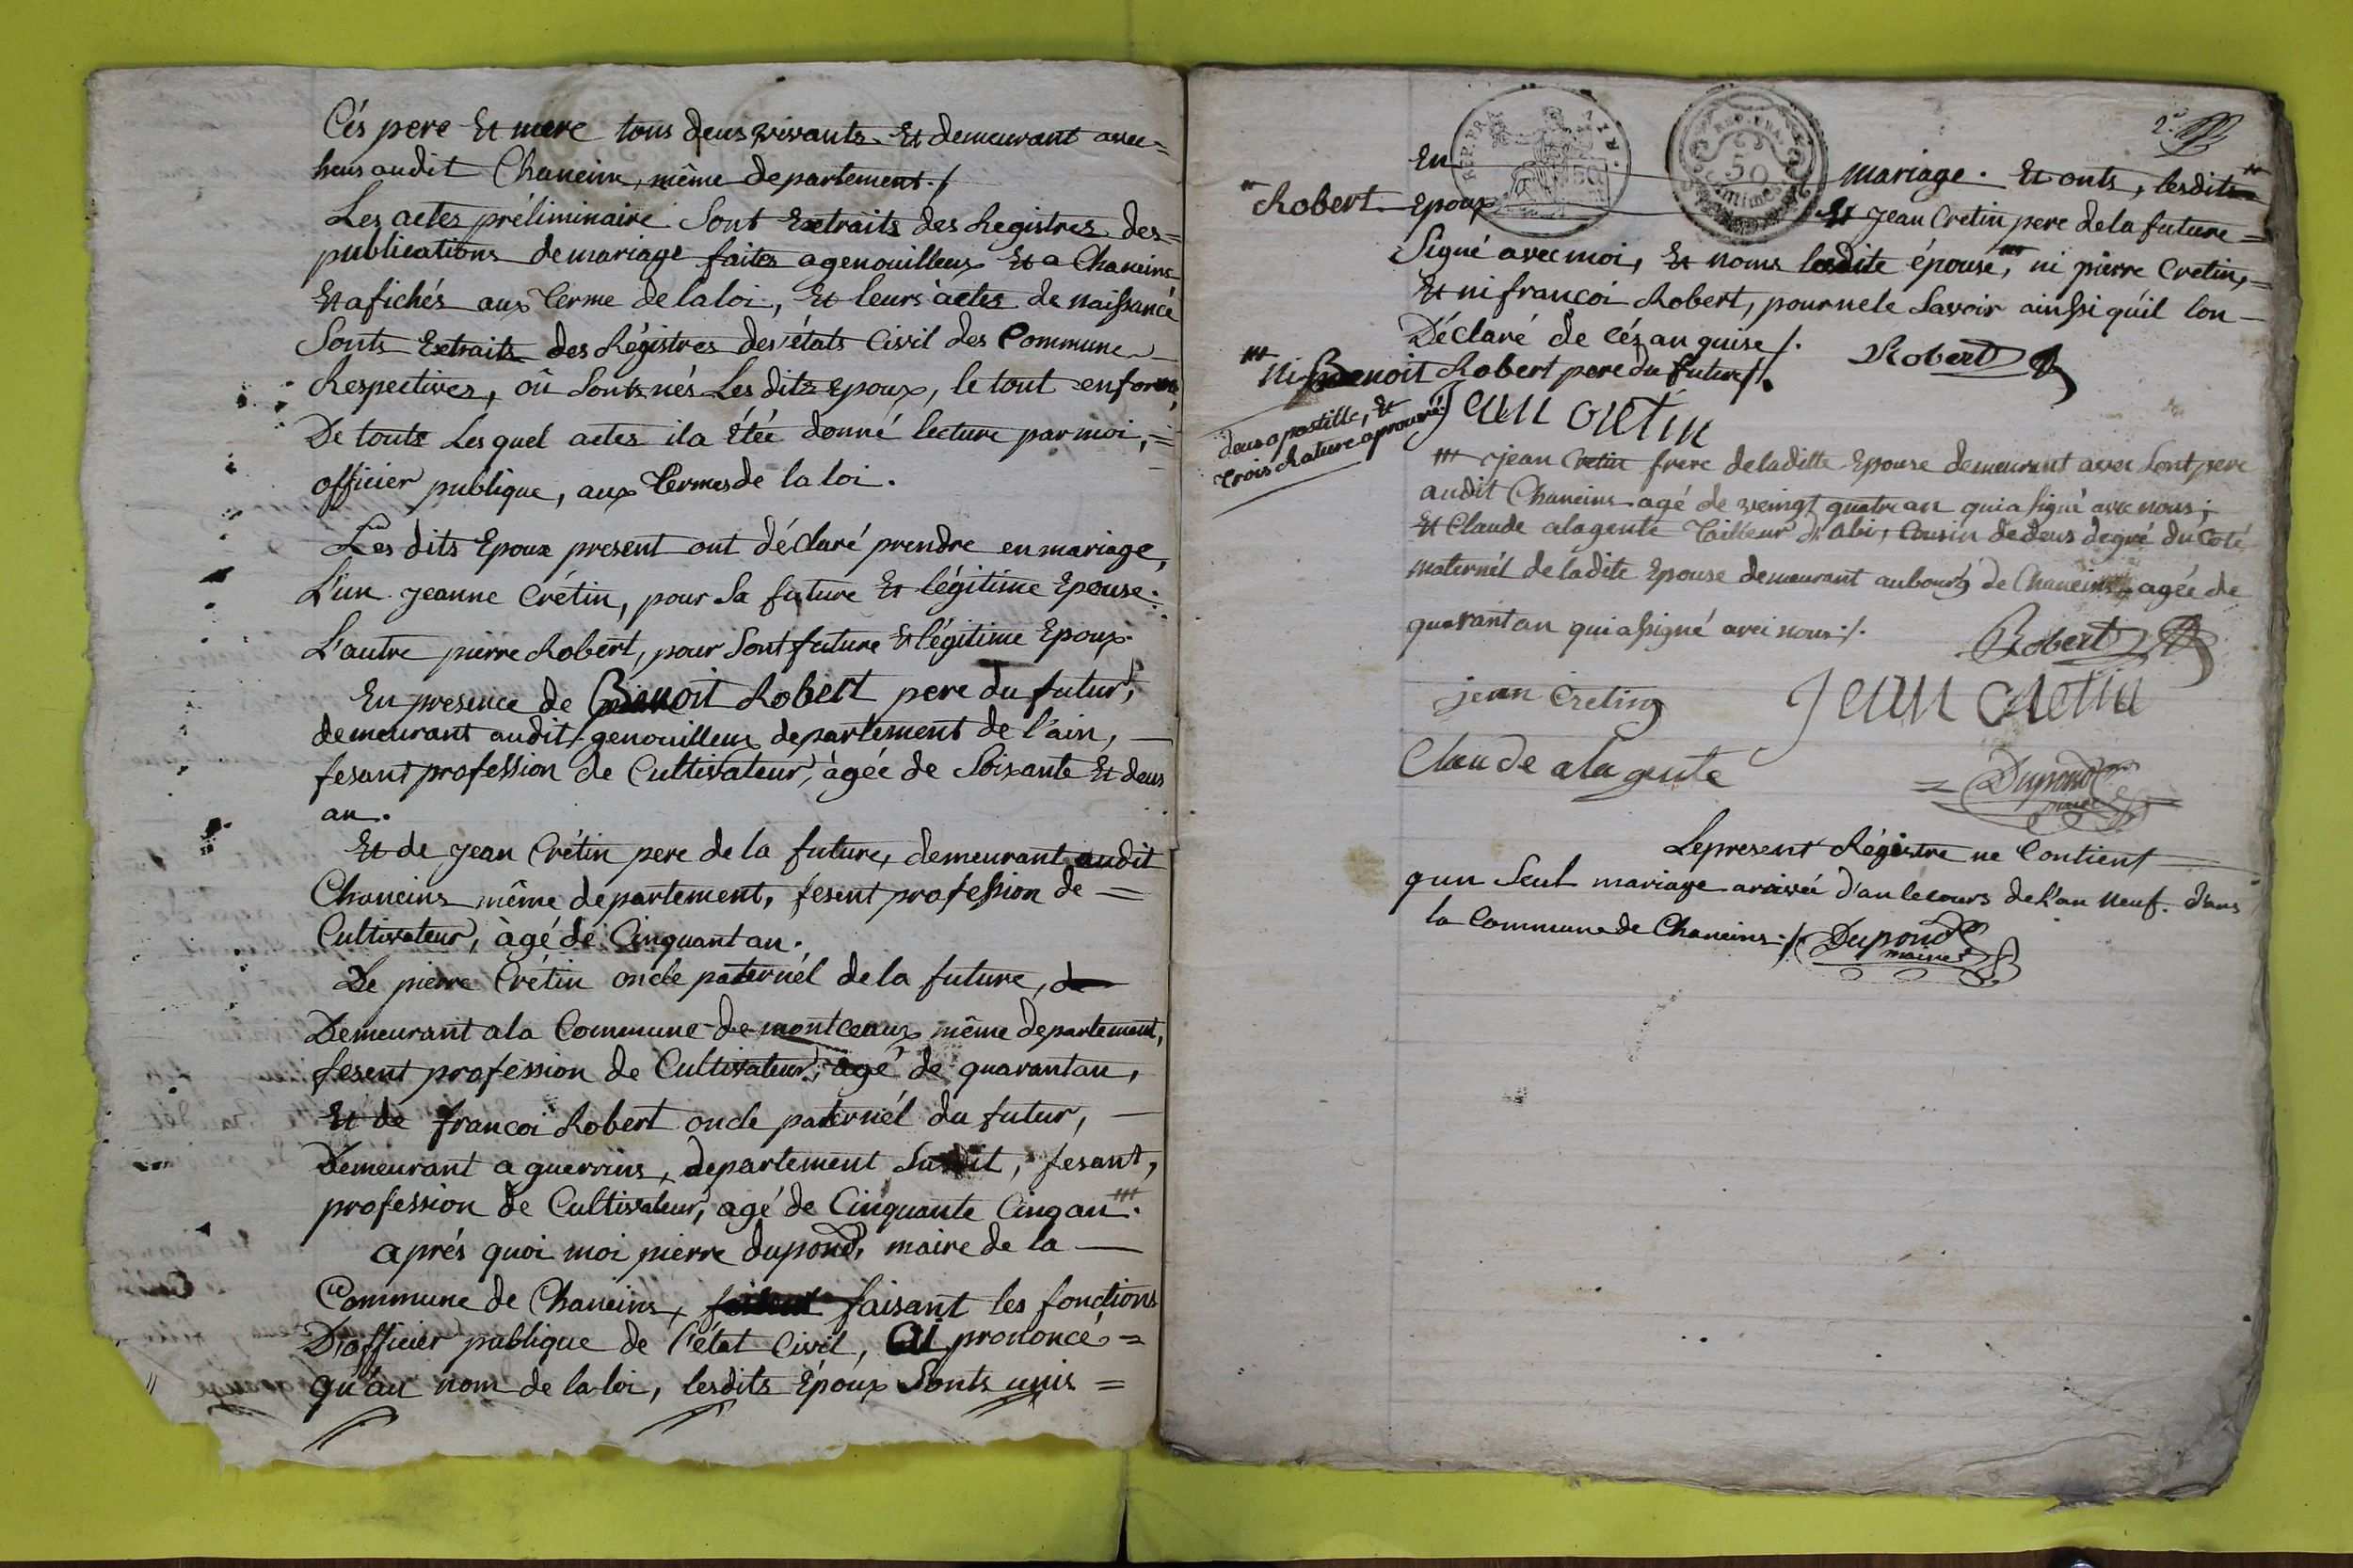 Cés pere Et mere tous deux vivants Et demeurant avec=
heux audit Chaneins, même departement ./
Les actes préliminaire Sont Extraits des Registres des=
publications de mariage faites a genouilleux Et a Chaneins
Et afichés aux terme de la loi, Et leurs actes de naissance
Sonts Extraits des Régistres des états Civil des Commune
Respectives, oû Sonts nés Les dits Epoux, le tout en forme,
De touts Les quel actes il a Étée donné lecture par moi,=
officier publique, aux termes de la loi.
Les dits Epoux present ont déclaré prendre en mariage,
L'un Jeanne Crétin, pour Sa future Et légitime Epouse.
L'autre pierre Robert, pour Sont future Et légitime Epoux.
En presence de Benoit Robert pere du futur,
demeurant audit genouilleux departement de l'ain,
fesant profession de Cultivateur, àgée de Soixante Et deux
an.
Et de Jean Crétin pere de la future, demeurant audit
Chaneins même departement, fesent profession de =
Cultivateur, àgé de Cinquant an.
De pierre Crétin oncle paternél de la future, de
Demeurant a la Commune de montceaux même departement,
fesent profession de Cultivateur, agé de quarant an,
Et de francoi Robert oncle paternél du futur,
Demeurant a guerrins, departement Susdit, fesant,
profession de Cultivateur, agé de Cinquante Cinq an.
aprés quoi moi pierre dupond, maire de la
Commune de Chaneins, faisant les fonctions
D'officier publique de l'état Civil, ai prononcé =
qu'au nom de la loi, lesdits Époux Sonts unis =
2e
REP. FRA.
50
En mariage. Et onts, lesdits
Robert Epoux Et Jean Cretin pere de la future =
Signé avec moi, Et noms ladite épouse, ni pierre Cretin,=
Et ni francoi Robert, pour ne le Savoir ainssi qu'il lon
Déclaré de cés an quise /.
Robert
ni Benoit Robert pere du futur /.
deux apostille, Et
trois Rature aprouvé
Jean cretin
Jean Cretin frere de laditte Epouse demeurant avec Sont pere
audit Chaneins agé de veingt quatre an qui a signé avec nous ;
Et Claude alagente Tailleur d'abi, Cousin de deux degré du Coté
maternél de ladite Epouse demeurant au bourg de Chaneins, agée de
quarant an qui a signé avec nous /.
Robert
jean Cretin
Jean cretin
Claude alagente
Dupond
maire
Le present Régistre ne Contient
qu un Seul mariage arrivée d'an le cours de l'an neuf. dans
la Commune de Chaneins ./. Dupond
maire